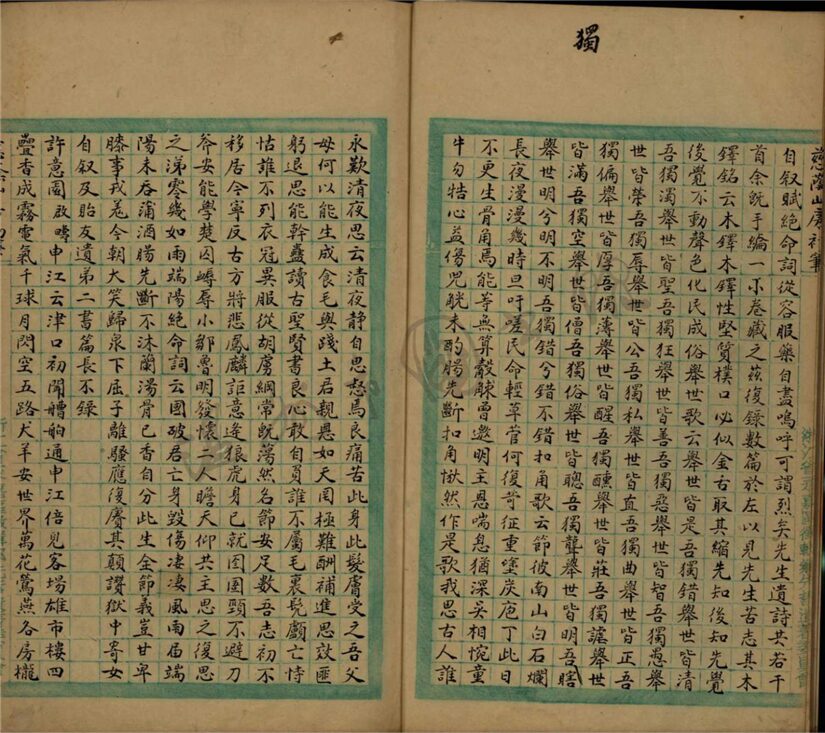 獨
慈蔭山房社筆
自叙賦絕命詞從容服藥自盡嗚呼可謂烈矣先生遺詩共若干
首余既手編一小卷藏之茲復錄數篇於左以見先生苦志其木
鐸銘云木鐸木鐸性堅質樸口必似金右取其縮先知後知先覺
後覺不動聲色化民成俗舉世歌云舉世皆是吾獨錯舉世皆清
吾獨濁舉世皆聖吾獨狂舉世皆善吾獨惡舉世皆智吾獨愚舉
世皆榮吾獨辱舉世皆公吾獨私舉世皆直吾獨曲舉世皆正吾
獨偏舉世皆厚吾獨薄舉世皆醒吾獨醺舉世皆莊吾獨謔舉世
皆滿吾獨空舉世皆僧吾獨俗舉世皆聰吾獨聾舉世皆明吾瞎
舉世明兮明不明吾獨錯兮錯不錯扣角歌云節彼南山白石爛
長夜漫漫幾時旦吁嗟民命輕草菅何復苛征重塗炭庖丁此日
不更生骨角馬能等無算觳觫曾邀明主恩喘息猶深吳相惋童
牛勿牿心益傷兕觥未酌腸先斷扣角愀然作是歌我思古人誰
永歎清夜思云清夜靜自思惄焉良痛苦此身此髮膚受之吾父
母何以能生成食毛與踐土君親恩如天罔極難酬補進思效匪
躬退思能幹蠱讀古聖賢書良心敢自負誰不屬毛裏髡顱亡恃
怙誰不列衣冠異服從胡虜綱常既蕩然名節安足數吾志初不
移居今寧反古方將悲鳳麟詎意逢狼虎身已就囹圄頸不避刀
斧安能學楚囚崎尋小鄒魯明發懷二人瞻天仰共主思之復思
之涕零幾如雨端陽絕命詞云國破君亡身毀傷凄凄風雨屆端
陽未吞蒲酒腸先斷不沐蘭湯骨已香自分此生全節義豈甘卑
膝事戎羌今朝大笑歸泉下屈子離騷應復賡其顛讚獄中寄女
自叙及貽友遺弟二書篇長不錄
許意園啟疇申江云津口初開鱄舶通申江倍見客塲雄市樓四
疊香成霧電氣千球月閃空五路犬羊安世界萬花鶯燕各房櫳